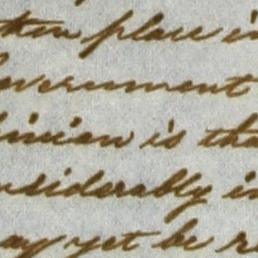 then place in
overnment
inion is tha
nsiderably in
ay yet be r